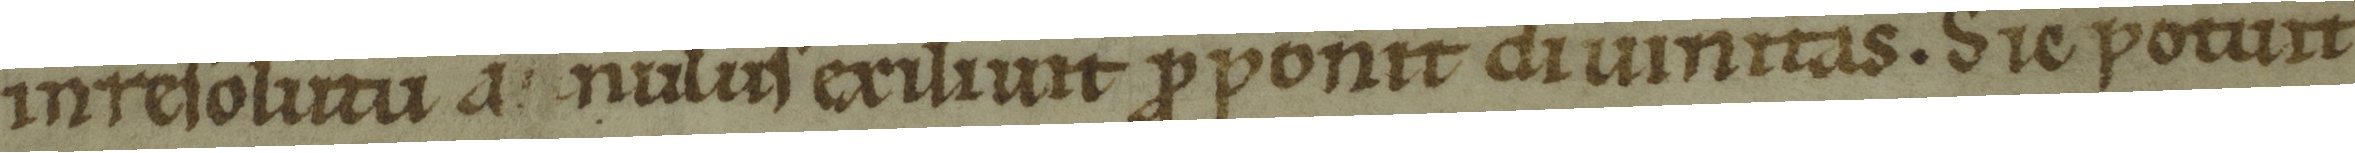 inresolutu a nulus exiliuit ꝓponit diuinitas. Sic potuit